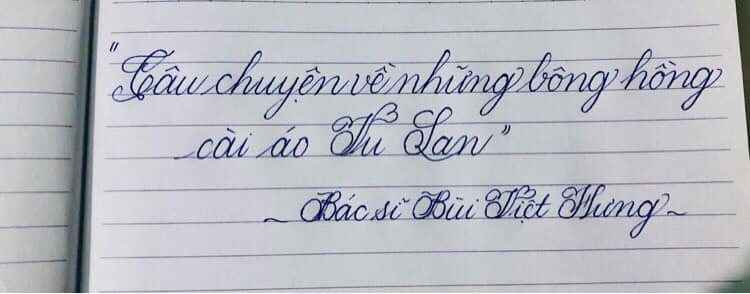 "Câu chuyện về những bông hồng
cài áo Tủ Lan"
~ Bác sĩ Bùi Việt Hưng ~